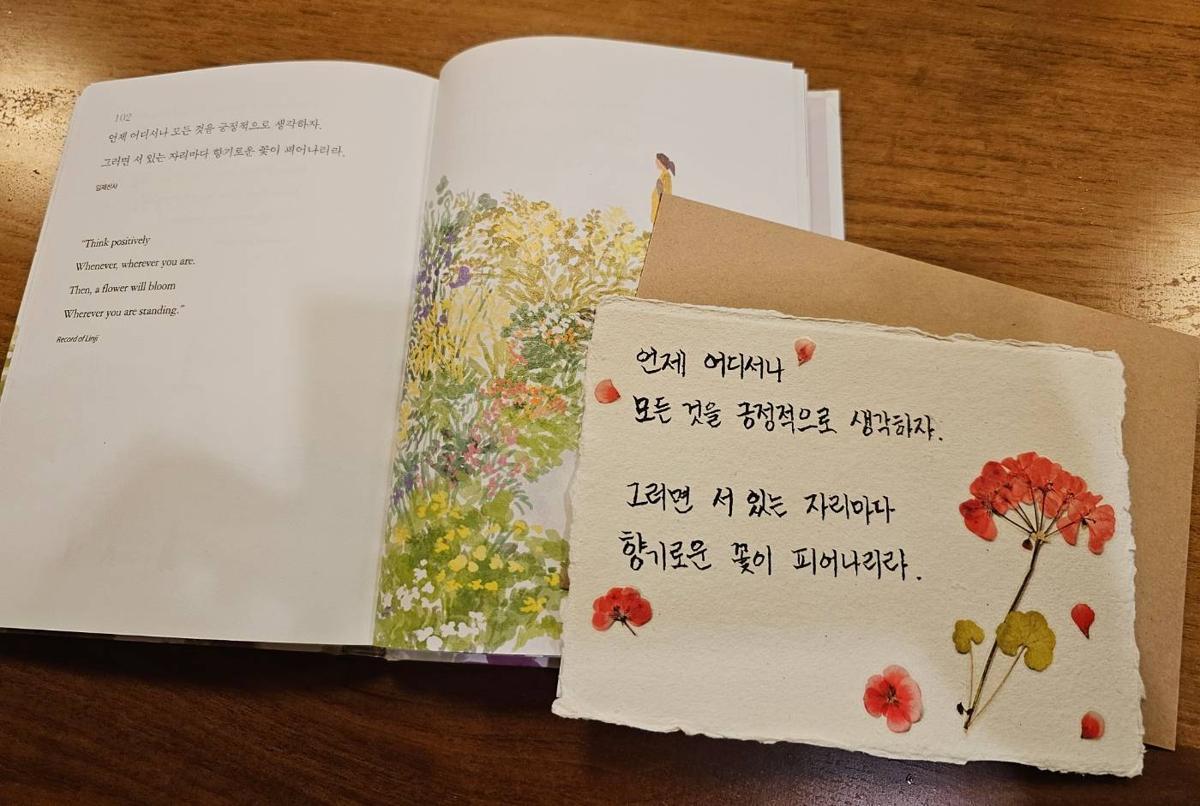 102
언제 어디서나 모든 것을 긍정적으로 생각하자.
그러면 서 있는 자리마다 향기로운 꽃이 피어나리라.
임제선사
“Think positively
Whenever, wherever you are.
Then, a flower will bloom
Wherever you are standing.”
Record of Linji
언제 어디서나
모든 것을 긍정적으로 생각하자.
그러면 서 있는 자리마다
향기로운 꽃이 피어나리라.